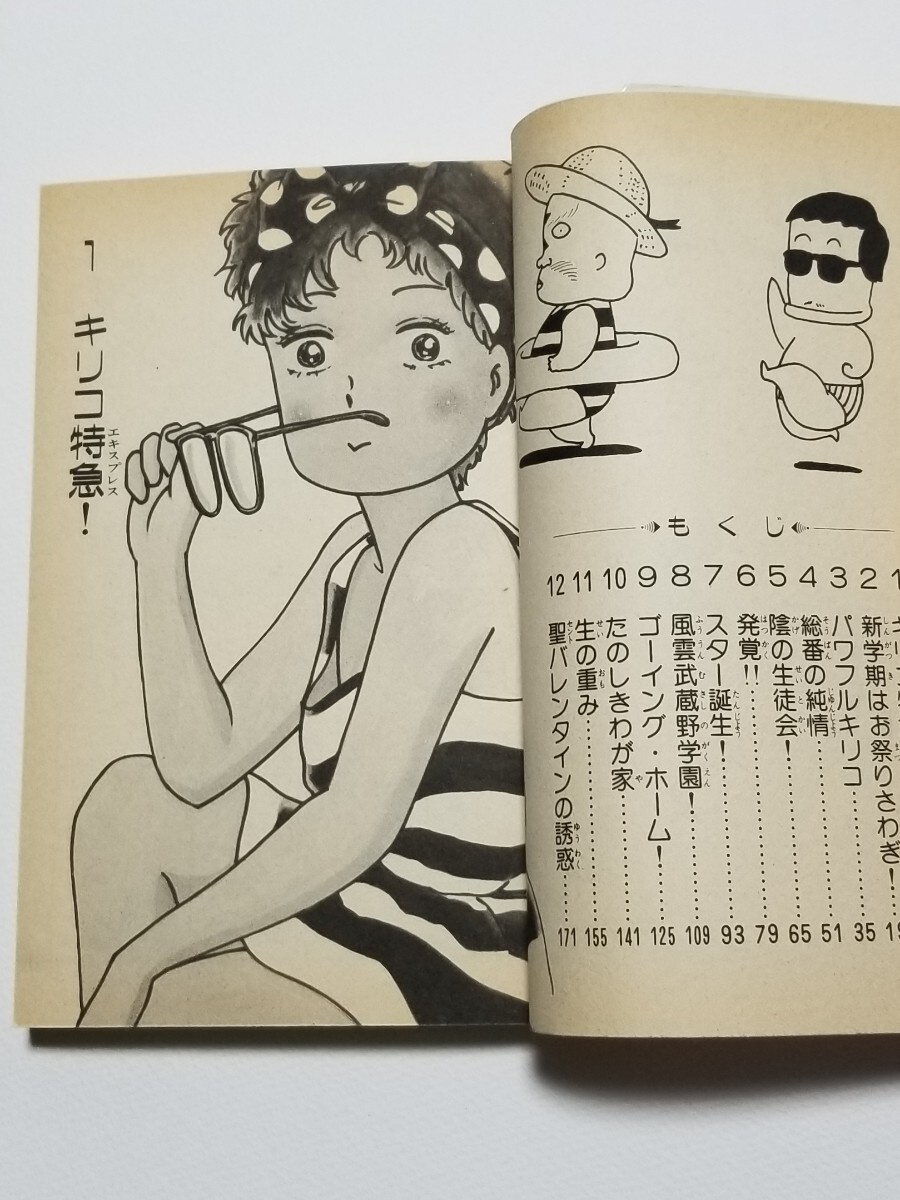 もくじ
2 新学期はお祭りさわぎ！……19
3 パワフルキリコ……35
4 総番の純情……51
5 陰の生徒会！……65
6 発覚!!……79
7 スター誕生！……93
8 風雲武蔵野学園！……109
9 ゴーイング・ホーム！……125
10 たのしきわが家……141
11 生の重み……155
12 聖バレンタインの誘惑……171
1 キリコ特急！
エキスプレス